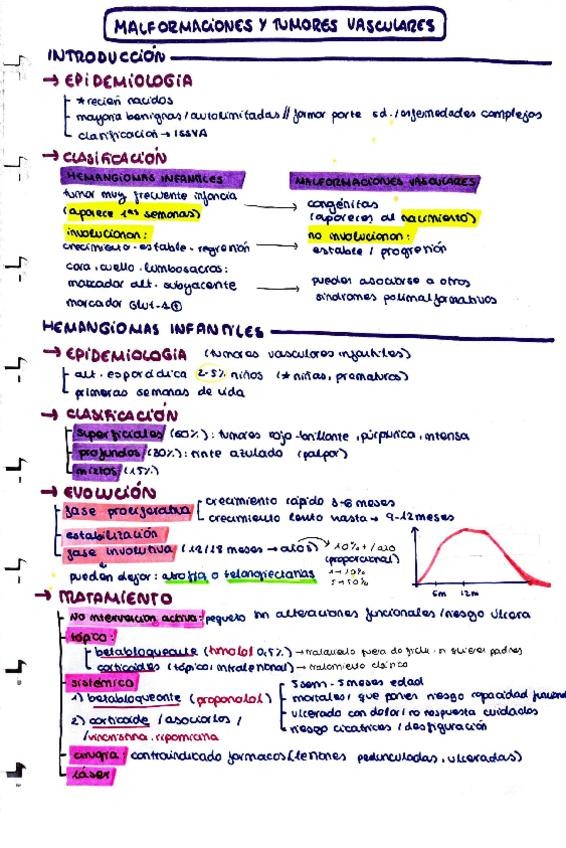 MALFORMACIONES Y TUMORES VASCULARES
INTRODUCCIÓN
→ EPIDEMIOLOGIA
* recien nacidos
mayoria benignas / autolimitadas // formar parte sd. / enfermedades complejas
clasificación → ISSVA
→ CLASIFICACIÓN
HEMANGIOMAS INFANTILES
MALFORMACIONES VASCULARES
tumor muy frecuente infancia
(aparece 1as semanas)
→ congénitas
(aparecen al nacimiento)
involucionan:
crecimiento - estable - regresión
→ no involucionan:
estable / progresión
cara, cuello, lumbosacros:
marcador alt. subyacente
marcador Glut-1 +
→ pueden asociarse a otros
síndromes polimalformativos
HEMANGIOMAS INFANTILES
→ EPIDEMIOLOGIA (tumores vasculares infantiles)
alt. esporádica 2-5% niños (* niñas, prematuros)
primeras semanas de vida
→ CLASIFICACIÓN
superficiales (60%): tumores rojo-brillante, púrpurica, intensa
profundos (30%): tinte azulado (palpar)
mixtos (15%)
→ EVOLUCIÓN
fase proliferativa
crecimiento rápido 3-6 meses
crecimiento lento hasta → 9-12 meses
estabilización
fase involutiva (12/18 meses → años)
10% / año
(proporcional)
1 → 10%
5 → 50%
pueden dejar: atrofia o telangiectasias
6m 12m
→ TRATAMIENTO
No intervencion activa: pequeño sin alteraciones funcionales / riesgo úlcera
tópico:
betabloqueante (timolol 0,5%) → tratamiento fuera de ficha · si quieren padres
corticoides (tópico, intralesional) → tratamiento clásico
sistémico
1) betabloqueante (propanolol)
2) corticoide / asociarlos /
/ vincristina, rapamicina
5 sem - 5 meses edad
mortales / que ponen riesgo capacidad
ulcerado con dolor / no respuesta cuidados
riesgo cicatrices / desfiguración
cirugía: contraindicado farmacos (lesiones pedunculadas, ulceradas)
láser